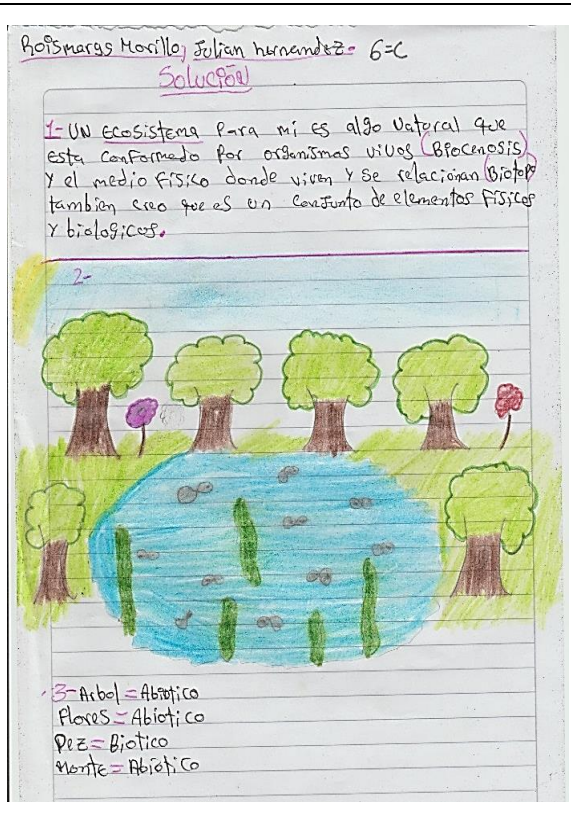 Roismarys Morillo, Julian hernandez- 6=C
Solución
1- UN ECOSISTEMA Para mí es algo Natoral que
esta conformado Por organismos vivos (Biocenosis)
Y el medio Físico donde viven Y se relacionan (Biotopo
tambien creo que es un conjunto de elementos Físicos
Y biologicos.
2-
3- Arbol = Abiotico
Flores = Abiotico
Pez = Biotico
Monte = Abiotico